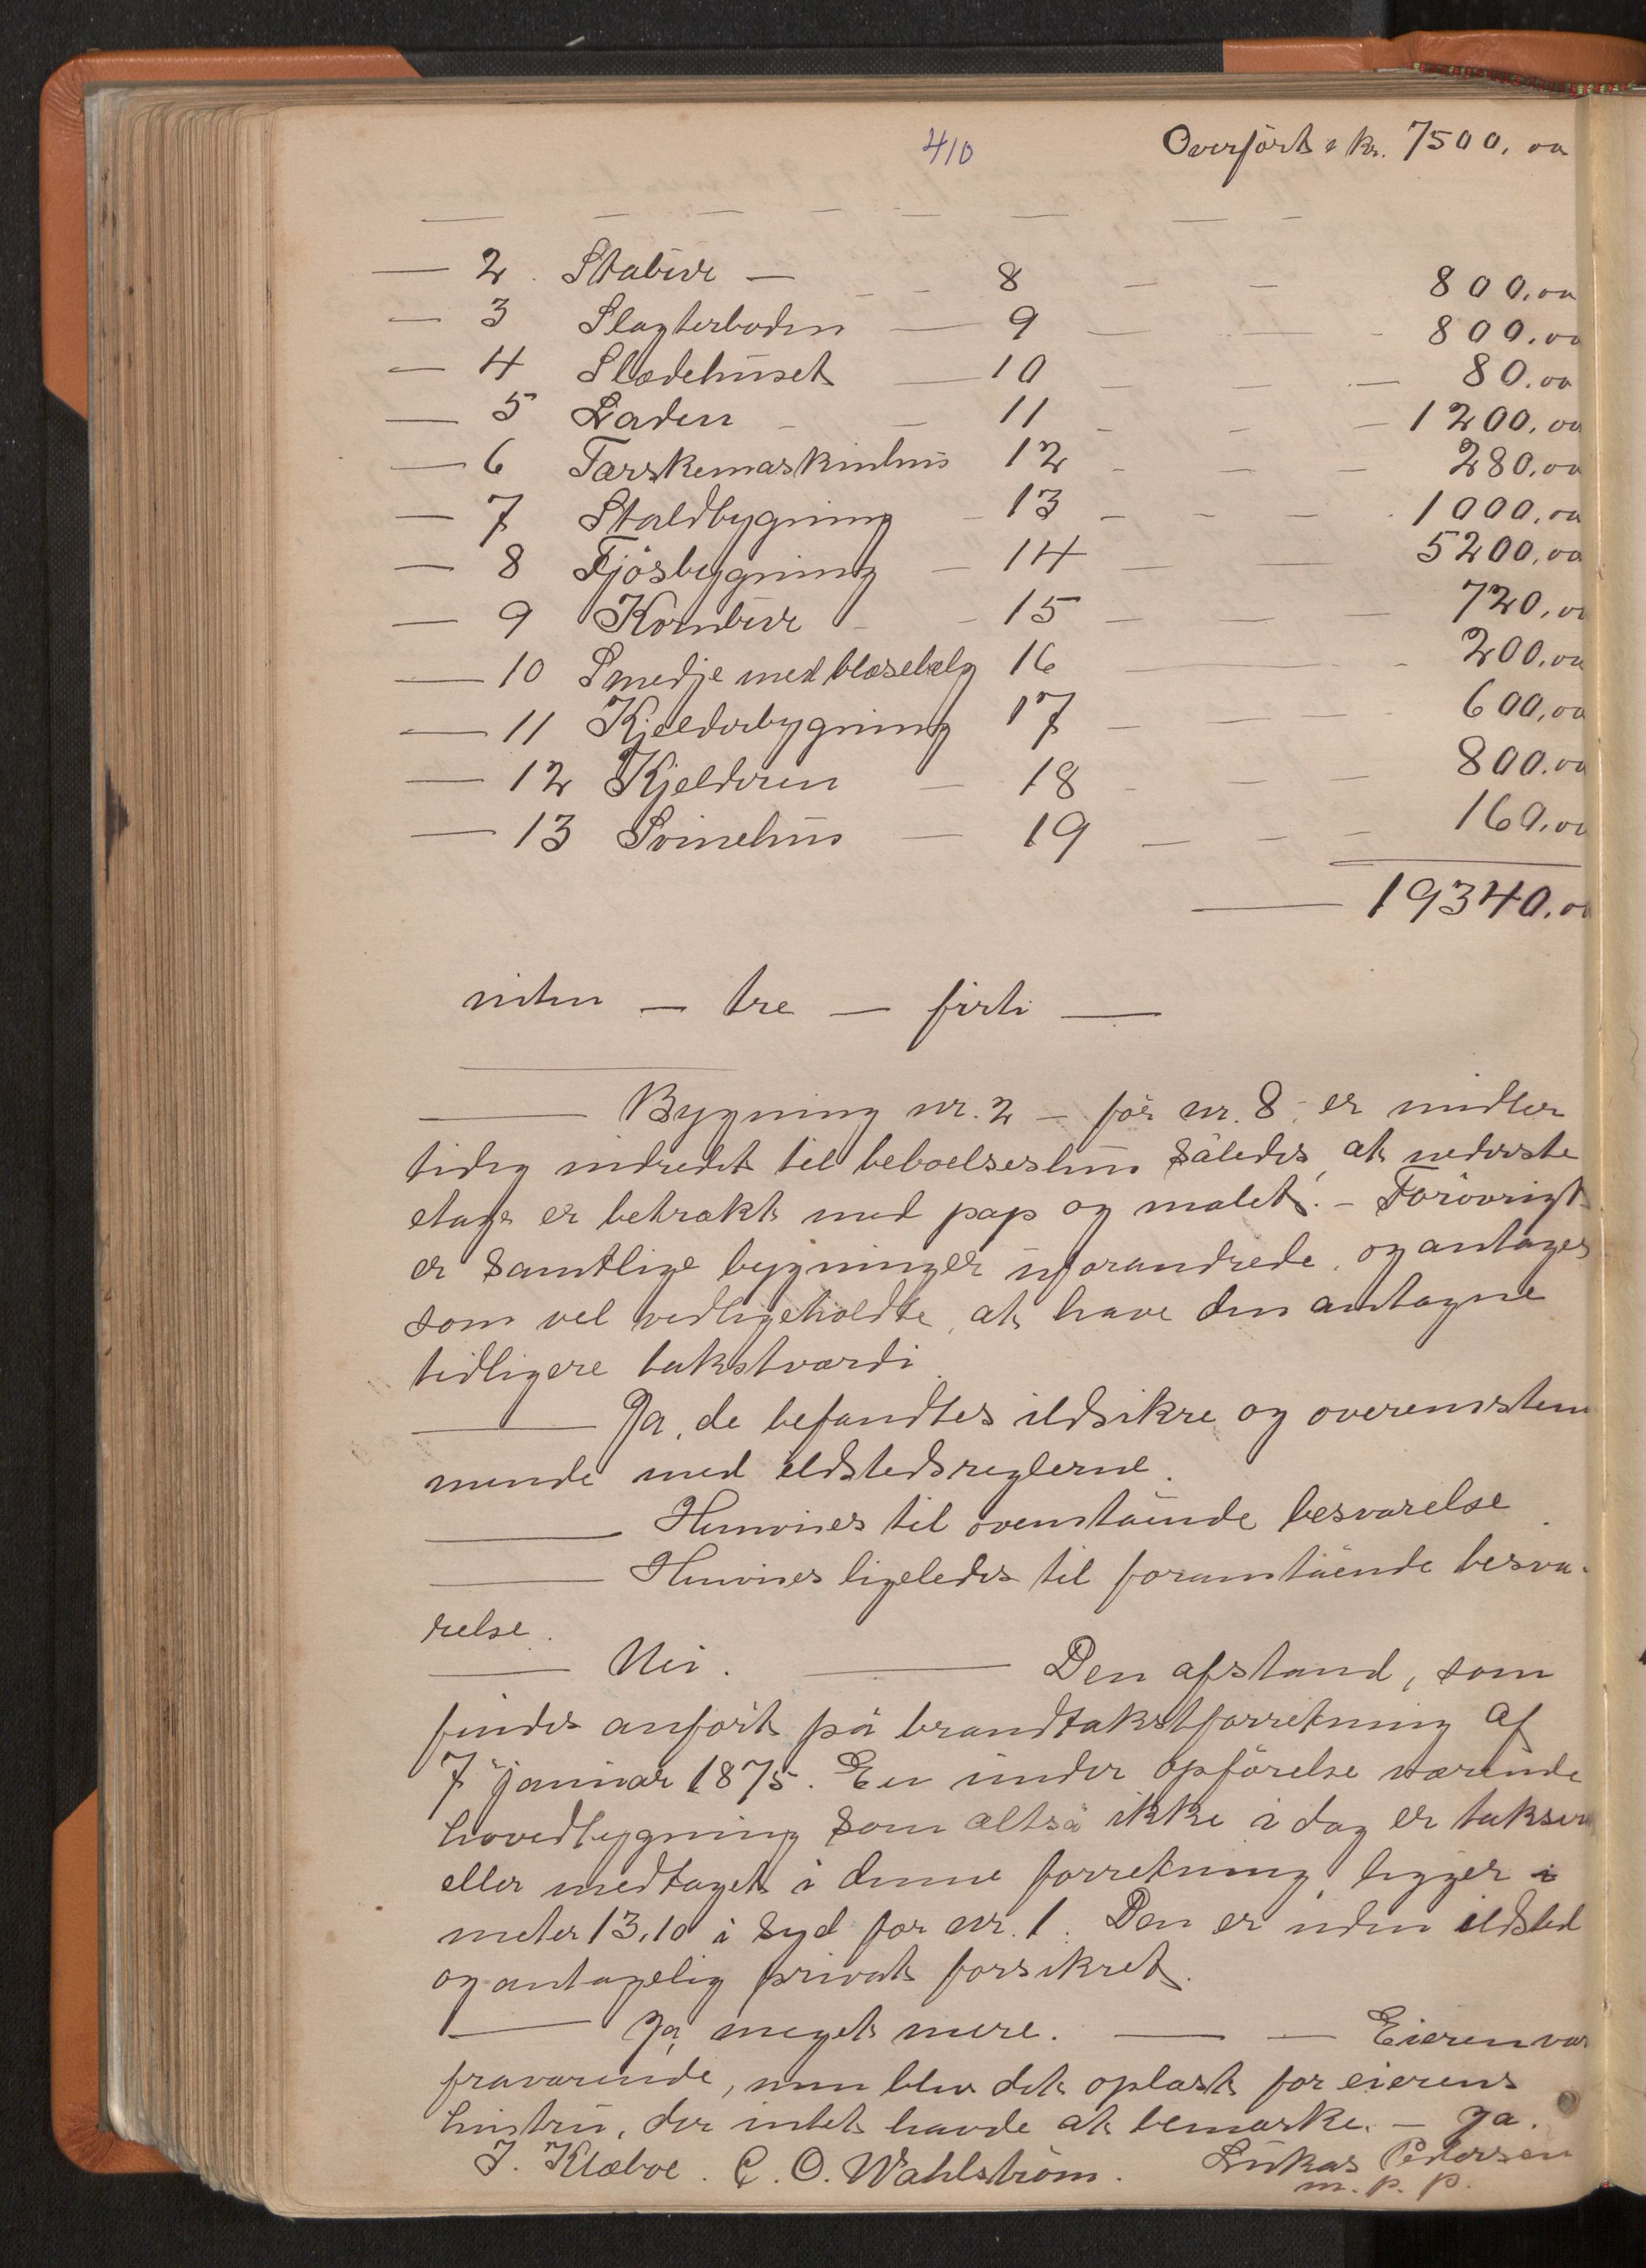 410
Overført kr. 7500,00
— 2 Stabur — 8 — — 800,00
— 3 Slagterboden — 9 — — 800,00
— 4 Slædehuset — 10 — — 80,00
— 5 Laden — 11 — — 1200,00
— 6 Tærskemaskinhus 12 — — 280,00
— 7 Staldbygning — 13 — — 1000,00
— 8 Fjøsbygning — 14 — — 5200,00
— 9 Kornbur — 15 — — 720,00
— 10 Smedje med blæsebælg 16 — — 200,00
— 11 Kjelderbygning 17 — — 600,00
— 12 Kjelderen — 18 — — 800,00
— 13 Svinehus — 19 — — 160,00
— 19340,00
nitten — tre — firti —
— Bygning nr. 2 – før nr. 8, er midler
tidig indredet til beboelseshus således, at nederste
etage er betrækt med pap og malet. – Forøvrigt
er samtlige bygninger uforandrede, og antages
som vel vedligeholdte, at have den antagne
tidligere takstværdi
— Ja, de befandtes ildsikre og overensstem
mende med ildstedsreglerne.
— Henvises til ovenstående besvarelse.
— Henvises ligeledes til foranstående besva-
relse.
— Nei. — Den afstand, som
findes anført på brandtakstforretning af
7 januar 1875. En under opførelse værende
hovedbygning som altså ikke i dag er takser
eller medtaget i denne forretning, ligger i
meter 13,10 i syd for nr. 1. Den er uden ildsted
og antagelig privat forsikret.
— Ja, meget mere. — — Eieren var
fraværende, men blev det oplæst for eierens
hustru, der intet havde at bemærke. – Ja.
J. Klæboe. C. O. Wahlstrøm. Lukas Pedersen
m. p. p.